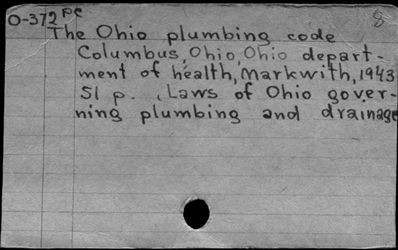 O-372 pc 8
The Ohio plumbing code
Columbus, Ohio, Ohio depart-
ment of health, Markwith, 1943
51 p. , Laws of Ohio gover-
ning plumbing and drainage